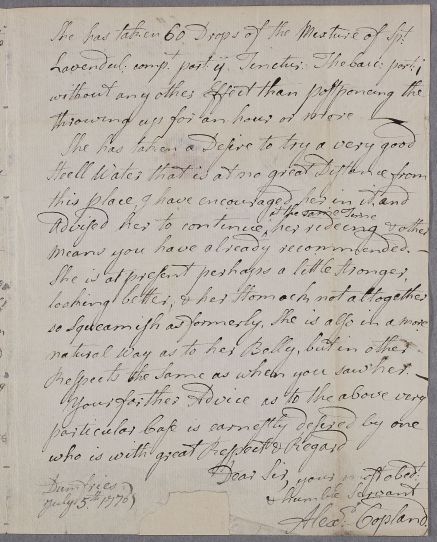 She has taken 60 Drops of the Mixture of Spt:
Lavendul: compt. part: ij Tinctur: Thebaic: part: i
without any other Effect than postponeing the
throwing up for an hour or more
She has taken a Desire to try a very good
Steell Water that is at no great Distance from
this place, I have encouraged her in it, and
at the same time
Advised her to continue her rideing & other
means you have already recommended. —
She is at present perhaps a little stronger,
looking better, & her Stomach not altogether
so Squeamish as formerly, She is also in a more
natural way as to her Belly, but in other
Respects the same as when you saw her. —
Your farther Advice as to the above very
particular Case is earnestly desired by one
who is with great Respect & Regard
Dear Sir, your most obedt.
& humble Servant
Alexr. Copland.
Dumfries
5th 1770